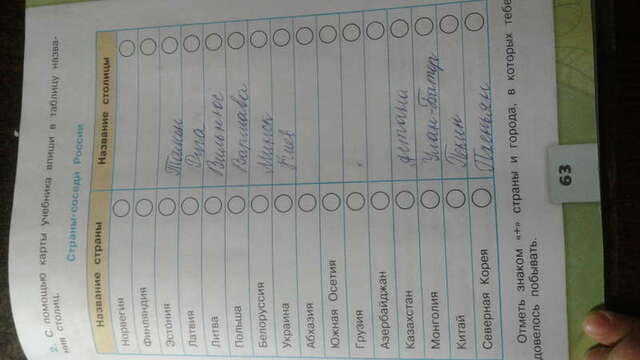 2. С помощью карты учебника впиши в таблицу назва-
ния столиц.
Страны-соседи России
Название страны Название столицы
Норвегия
Финляндия
Эстония Таллин
Латвия Рига
Литва Вильнюс
Польша Варшава
Белоруссия Минск
Украина Киев
Абхазия
Южная Осетия
Грузия
Азербайджан
Казахстан Астана
Монголия Улан-Батор
Китай Пекин
Северная Корея Пхеньян
Отметь знаком «+» страны и города, в которых тебе
довелось побывать.
63